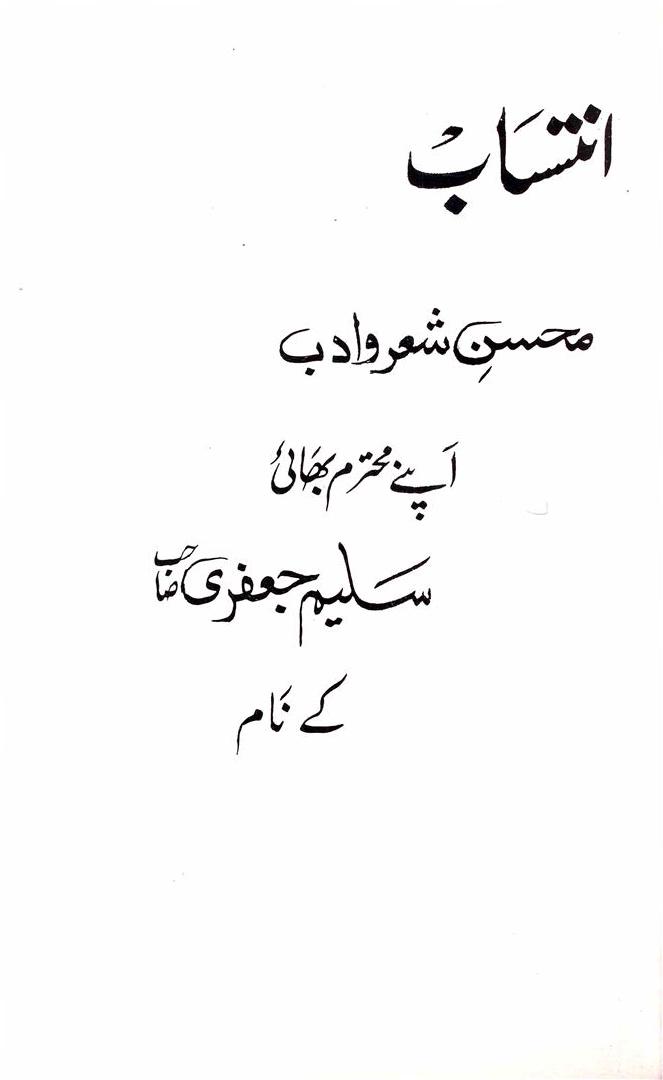 انتساب
محسنِ شعر و ادب
اَپنے محترم بھَائی
سَلیم جعفری صَاحب
کے نَام